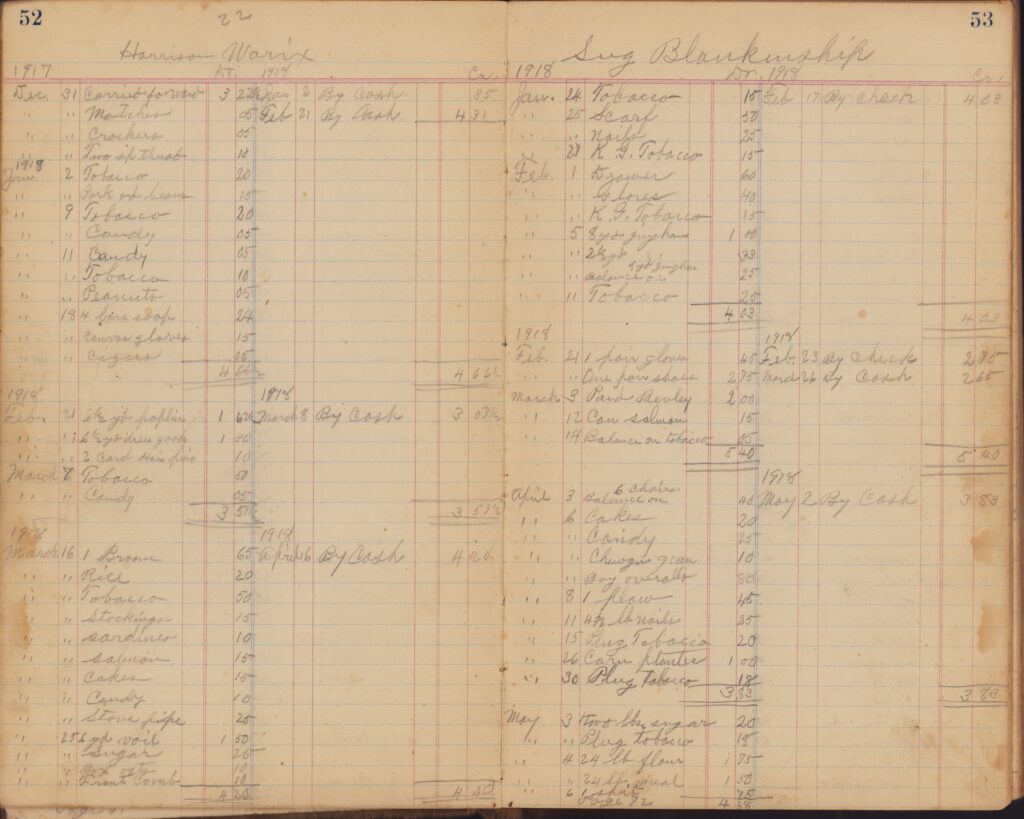 52
22
Harrison Warix
1917 Dr. 1918 Cr.
Dec. 31 Carried forward 3 22½ Jan 6 By Cash 35
" " Matches 05 Feb 21 By Cash 4 31
" " Crackers 05
" " Two sp thread 10
1918
Jan. 2 Tobacco 20
" " Pork and beans 15
" 9 Tobacco 20
" " Candy 05
" 11 Candy 05
" " Tobacco 10
" " Peanuts 05
" 18 4 bars soap 24
" " Canvas gloves 15
" " Cigars 05
4 66½ 4 66½
1918 1918
Feb. 21 6½ yd poplin 1 62½ March 8 By Cash 3 57½
" " 6½ yd dress goods 1 30
" " 2 Card Hair pins 10
March 7 Tobacco 50
" " Candy 05
3 57½ 3 57½
1918 1918
March 16 1 Broom 65 April 6 By Cash 4 20
" " Rice 20
" " Tobacco 50
" " Stockings 15
" " Sardines 10
" " Salmon 15
" " Cakes 15
" " Candy 10
" " Stove pipe 25
" 25 6 yd voil 1 50
" " Sugar 25
" " 10
" " Front Comb 10
4 20 4 20
53
Sug Blankinship
1918 Dr. 1918 Cr.
Jan. 24 Tobacco 15 Feb 17 By Check 4 03
" 25 Scarf 50
" " Nails 25
" 27 K. G. Tobacco 15
Feb. 1 Drawer 60
" " Gloves 40
" " K. G. Tobacco 15
" 5 8 yd gingham 1 00
" " 2½ yd 33
" " Balance on 8 yd gingham 25
" 11 Tobacco 25
4 03 4 03
1918 1918
Feb. 21 1 pair gloves 45 Feb. 23 By Check 2 75
" " One pair shoes 2 75 March 26 By Cash 2 65
March 3 Paid Bevley 2 00
" 12 Can salmon 15
" 14 Balance on tobacco 05
5 40 5 40
1918
April 3 Balance on 6 Chairs 40 May 2 By Cash 3 83
" 6 Cakes 20
" " Candy 25
" " Chewgn gum 10
" " Boy overalls 80
" 8 1 plow 45
" 11 4½ lb nails 25
" 15 Plug Tobacco 20
" 26 Corn planter 1 00
" 30 Plug tobacco 18
3 83 3 83
May 3 two lbs. sugar 20
" " Plug tobacco 18
" 4 24 lb flour 1 75
" " 24 lb. meal 1 50
" 6 1 shirt 75
Page 82 4 38